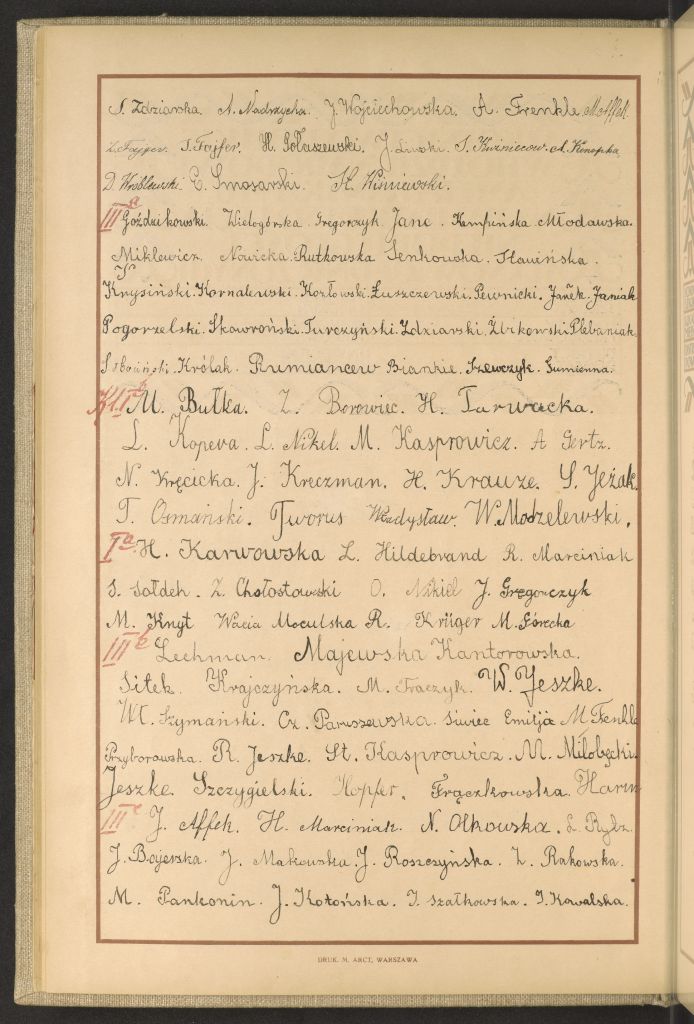 S. Zdziarska. A. Nadrzycha. J. Wojciechowska. A. Frenkle M. Affek.
Z. Fajfer. I. Fajfer. H. Gołaszewski. J. Liwski. S. Kwiniecow. A. Konopka
D. Wróblewski. E. Smosarski. St. Wiśniewski.
III a Goździkowski. Wielogórska. Gregorczyk Janc. Kempińska Młodawska.
Miklewicz. Nowicka. Rutkowska Senkowska. Sławińska.
Krysiński. Kornalewski. Kozłowski. Łuszczewski. Pewnicki. Janek. Janiak
Pogorzelski. Skowroński. Turczyński. Zdziarski. Żbikowski Plebaniak.
Królak. Rumiancew Biankie. Szewczyk. Gumienna.
Kl. I b M. Bułka. Z. Borowiec. H. Tarwacka.
L. Kopeva. L. Nikel. M. Kasprowicz. A Gertz.
N. Kręcicka. J. Kreczman. H. Krauze. S. Jeżak.
T. Osmański. Tworus Władysław. W. Modzelewski.
I a H. Karwowska L. Hildebrand R. Marciniak
S. Sołdek. Z. Chołostowski O. Nikiel J. Gregorczyk
M. Knyt Wacia Moculska R. Krüger M. Górecka
III b Lechman. Majewska Kantorowska.
Sitek. Krajczyńska. M. Fraczyk. W. Jeszke.
Wł. Szymański. Cz. Paruszewska. Siwiec Emilja M. Fenkle
Przyborowska. R. Jeszke. St. Kasprowicz. M. Miłobęcki.
Jeszke. Szczygielski. Hopfer. Frączkowska.
III c J. Affek. H. Marciniak. N. Olkowska. L. Rybz
J. Bajerska. J. Makowska. J. Roszczyńska. Z. Rakowska.
M. Pankonin. J. Kotońska. I. Szałkowska. I. Kowalska.
DRUK. M. ARCT, WARSZAWA